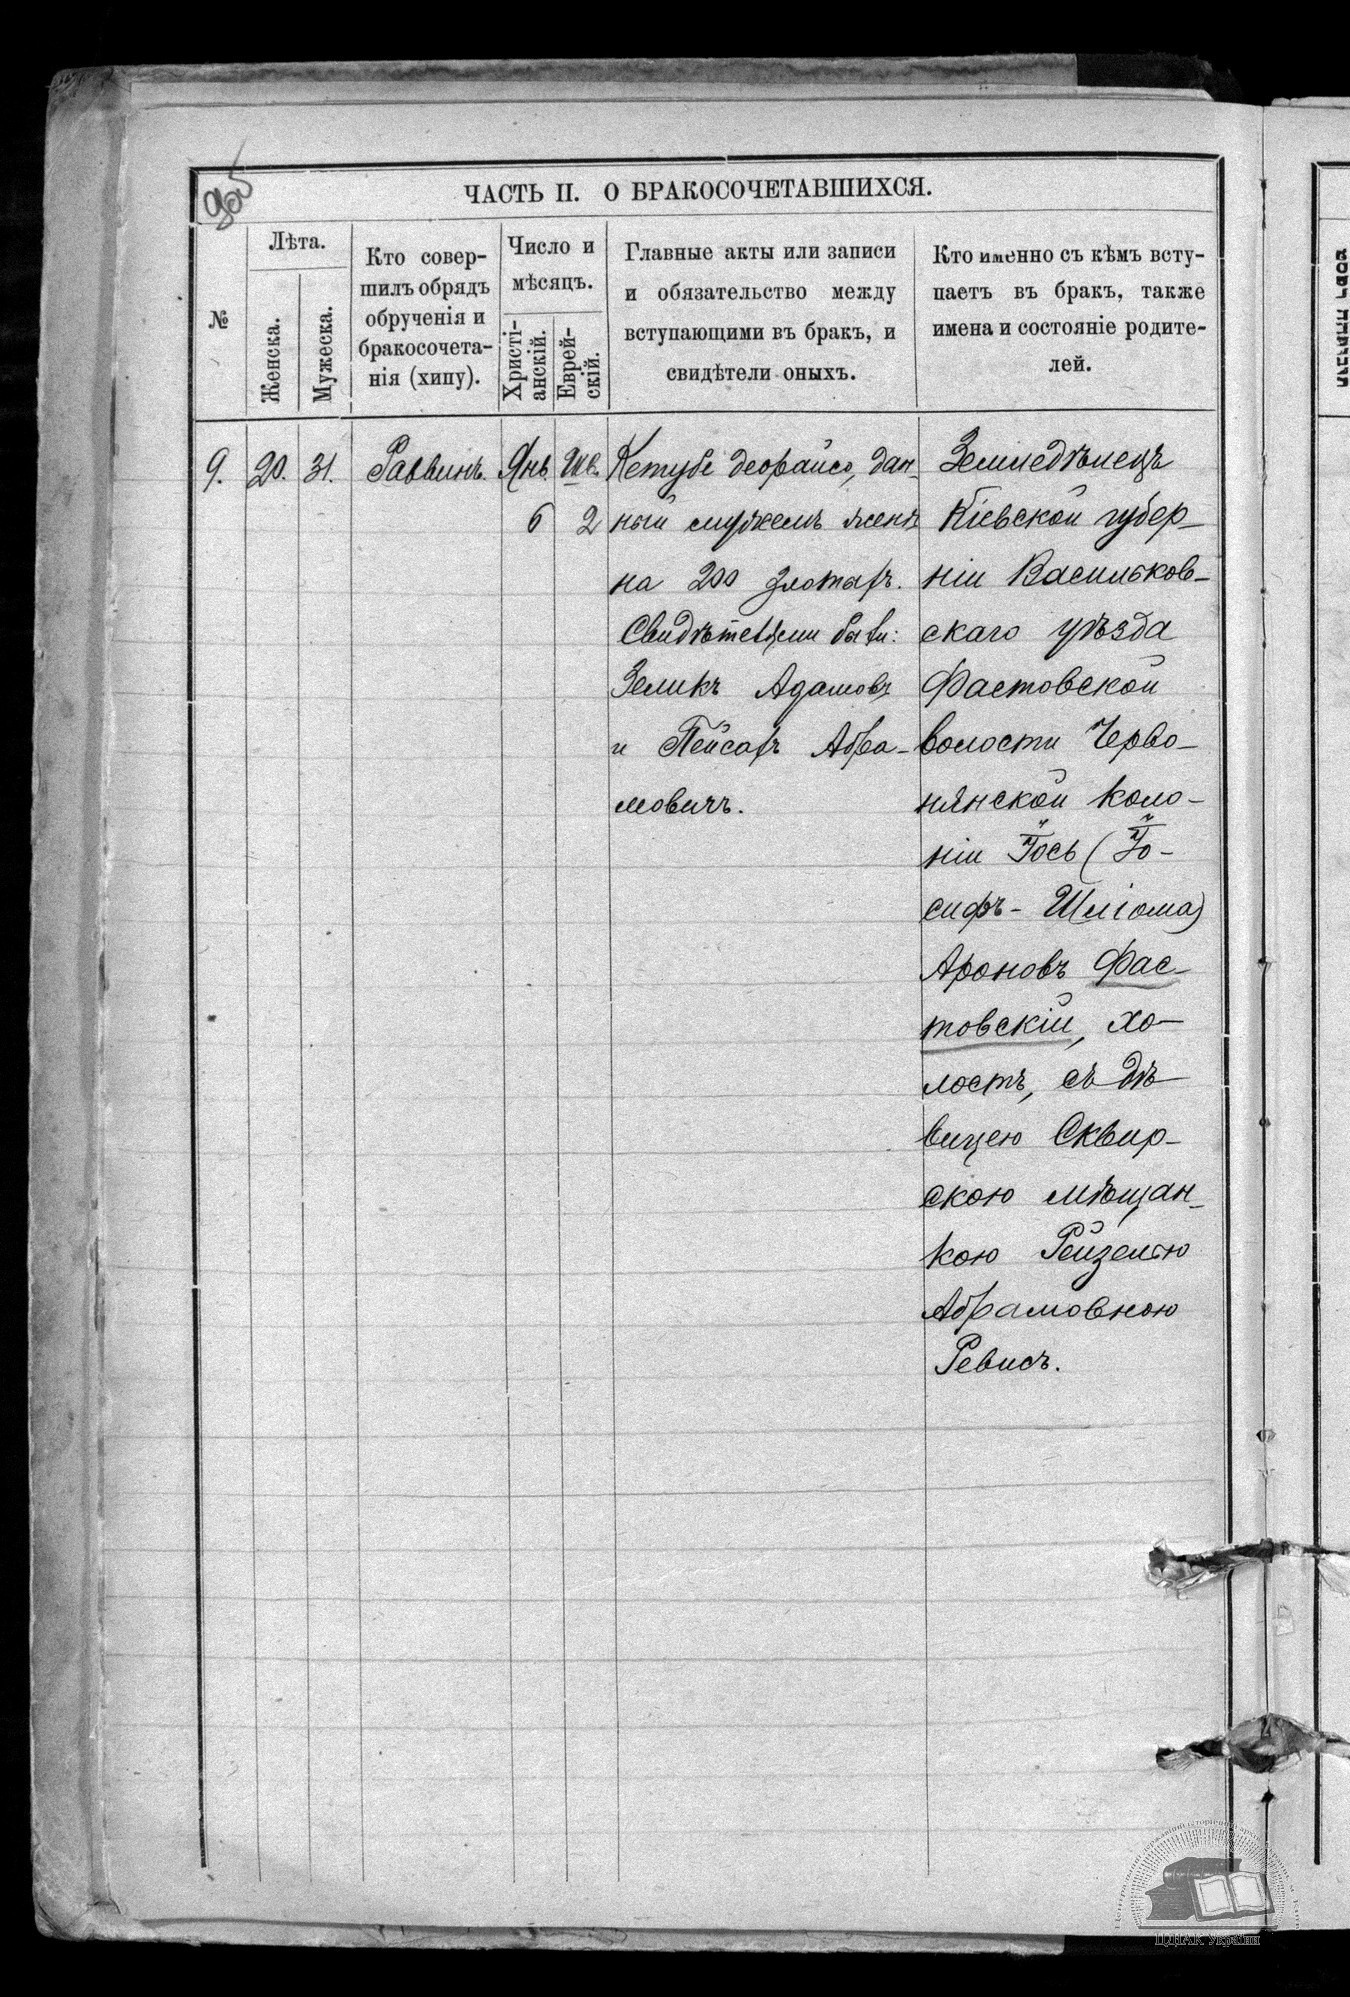 ЧАСТЬ II. О БРАКОСОЧЕТАВШИХСЯ.
№
Лѣта.
Женска.
Мужеска.
Кто совер-
шилъ обрядъ
обрученія и
бракосочета-
нія (хипу).
Число и
мѣсяцъ.
Христі-
анскій.
Еврей-
скій.
Главные акты или записи
и обязательство между
вступающими въ бракъ, и
свидѣтели оныхъ.
Кто именно съ кѣмъ всту-
паетъ въ бракъ, также
имена и состояніе родите-
лей.
9.
20.
31.
Раввинъ.
Янв.
6
Шв.
2
Кетубе деорайсо, дан-
ный мужемъ женѣ
на 200 злотыхъ.
Свидѣтелями были:
Зеликъ Адамовъ
и Пейсахъ Абра-
мовичъ.
Земледѣлецъ
Кіевской губер-
ніи Васильков-
скаго уѣзда
Фастовской
волости Черво-
нянской коло-
ніи Іось (Іо-
сифъ-Шліома)
Ароновъ Фас-
товскій, хо-
лостъ, съ дѣ-
вицею Сквир-
скою мѣщан-
кою Рейзелью
Абрамовною
Ревисъ.
ЦДІАК України